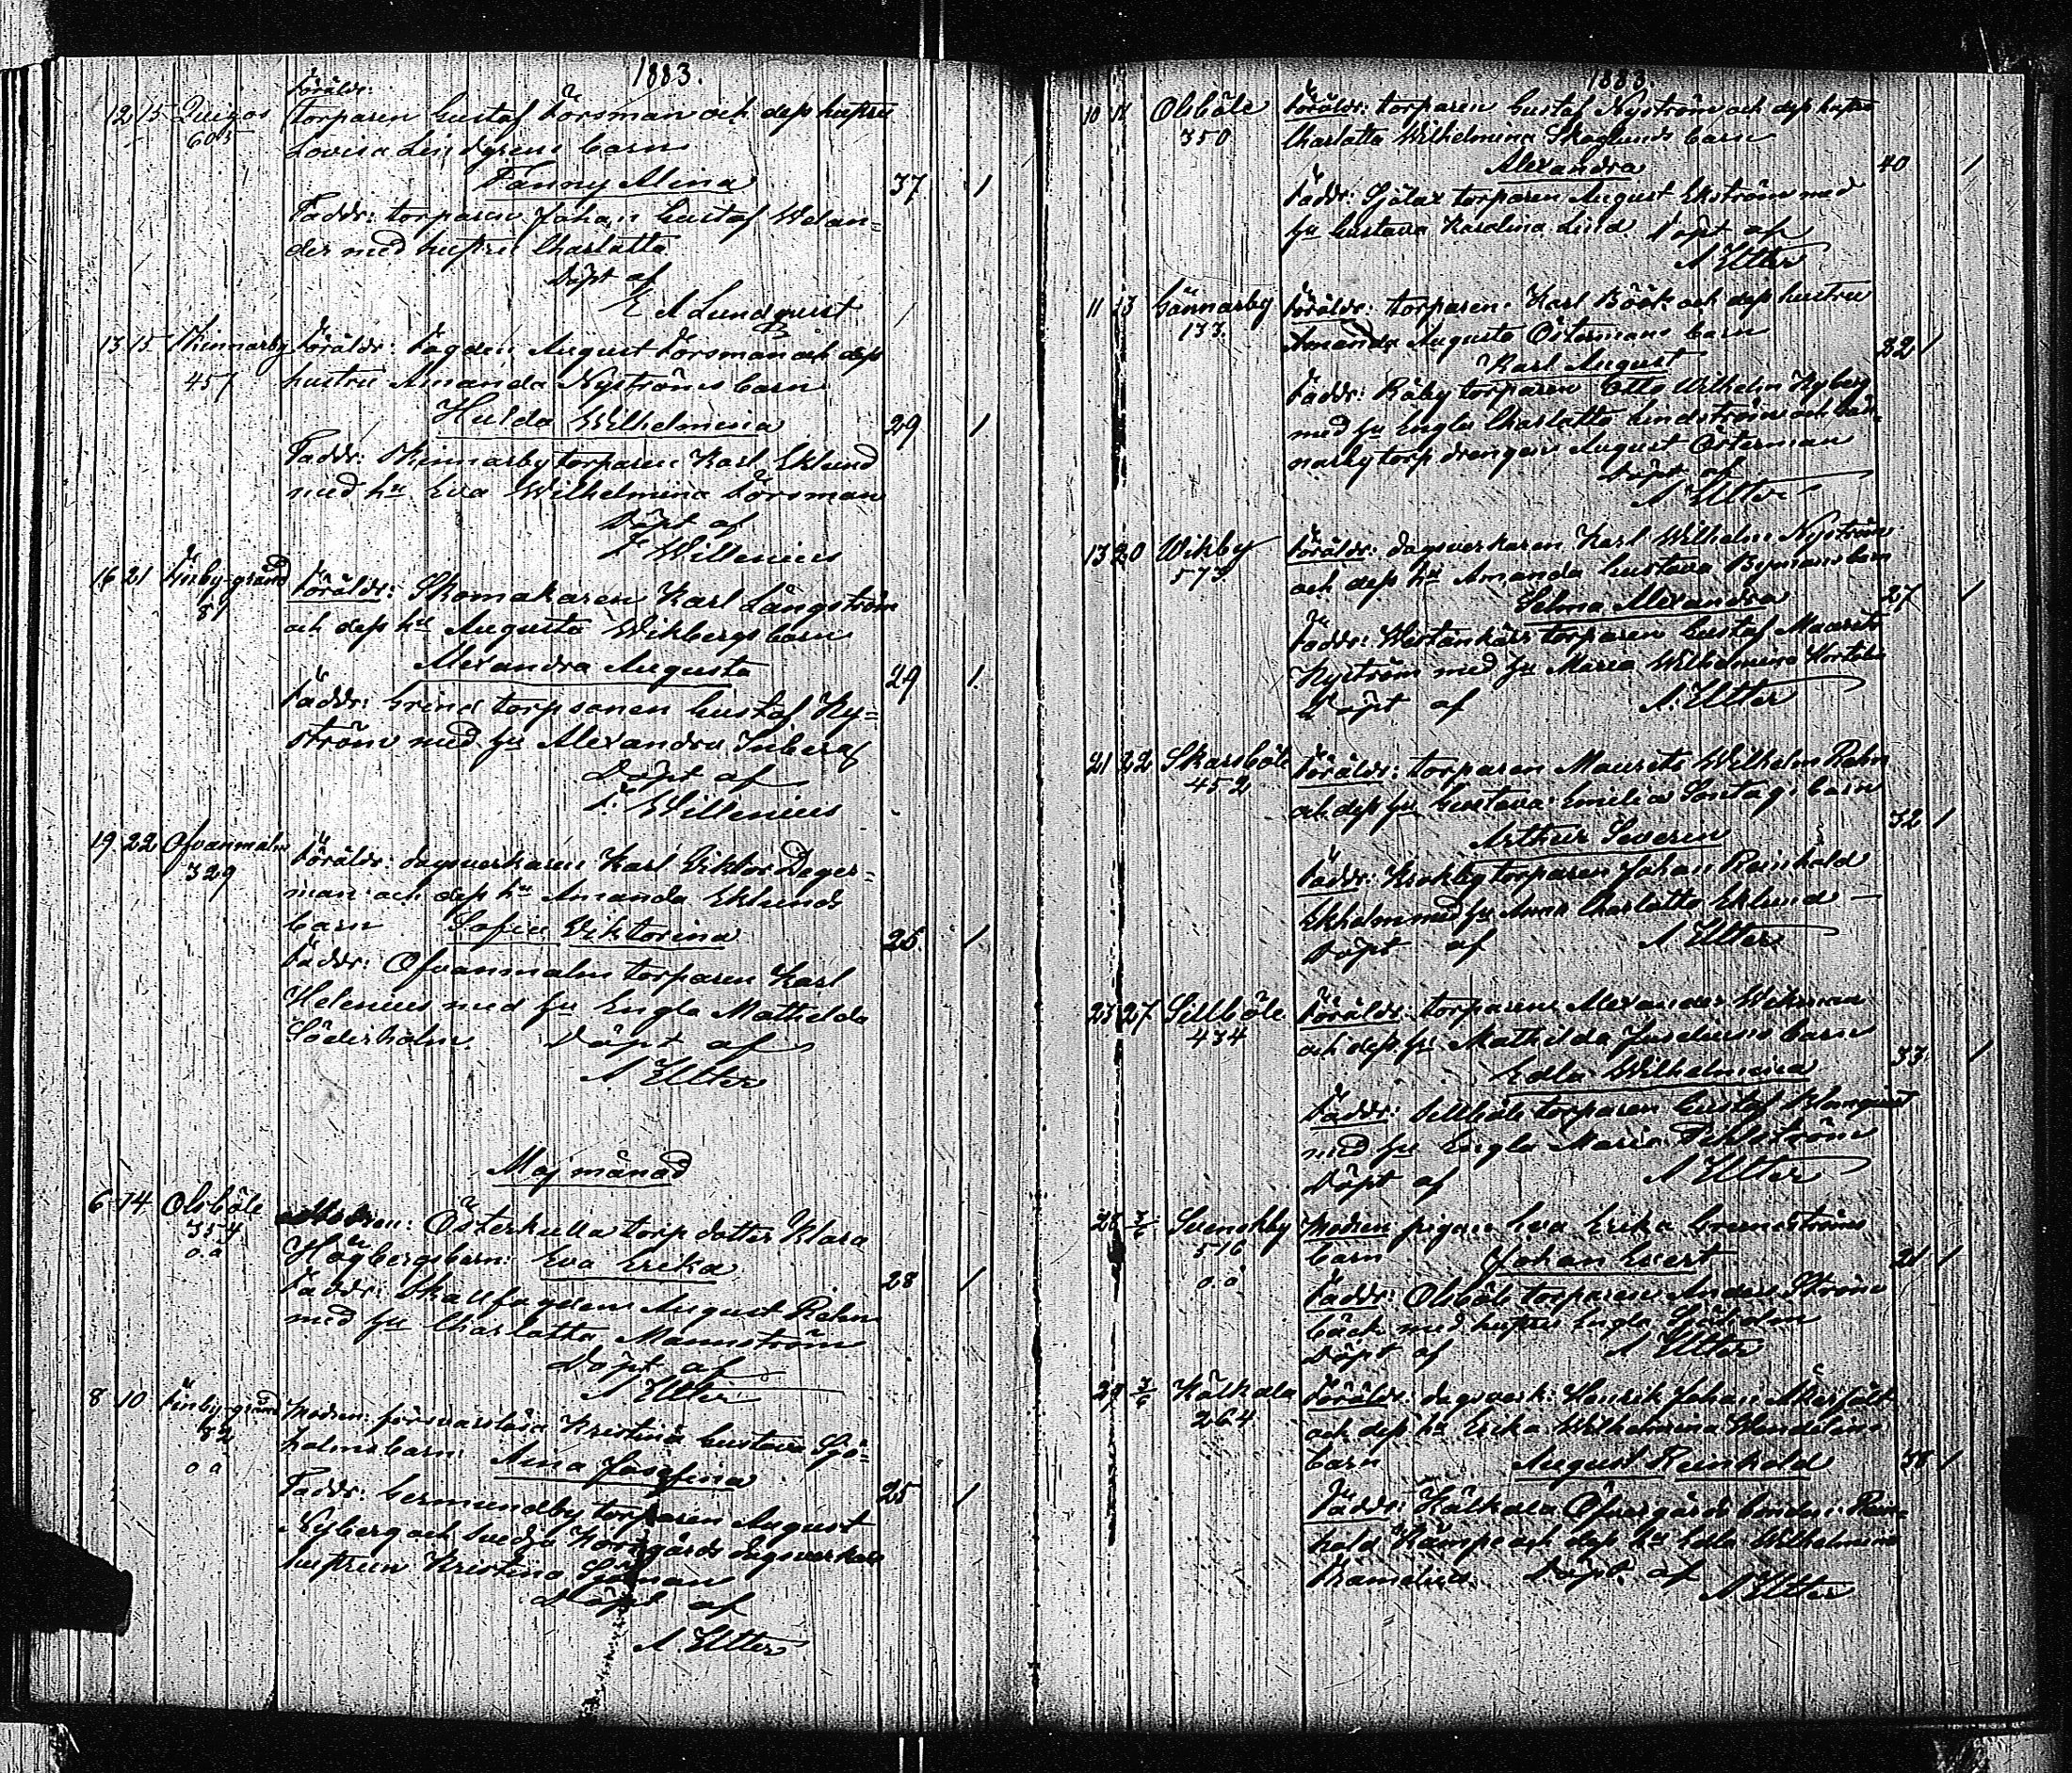 1883.
Föräldr:
12 15 torparen Gustaf Forsman och dess hustru
605 Lovisa Lindgrens barn
Fanny Alina 37 1
Faddr: torparen Johan Gustaf Welan=
der med hustru Charlotta
Döpt af
E A Lundqvist
13 15 Skinnarby Föräldr: Fogden August Forsman och dess
457 hustru Amanda Nyströms barn
Hulda Wilhelmina 29 1
Faddr: Skinnarby torparen Karl Eklund
med hu Eva Wilhelmina Forsman
Döpt af
F. Willenius
16 21 Finby-gränd Föräldr: Skomakaren Karl Långström
87 och dess hu Augusta Wikbergs barn
Alexandra Augusta 29 1
Faddr: torpsonen Gustaf Ny=
ström med hu Alexandra
Döpt af
F. Willenius
19 22 Ofvanmalm Föräldr: dagsverkaren Karl Viktor Deger=
329 man och dess hu Amanda Eklunds
barn Sofia Viktorina 25 1
Faddr: Ofvanmalm torparen Karl
Helenius med hu Engla Mathilda
Söderholm. Döpt af
A Utter
Maj månad
6 14 Olsböle Modren: Österkulla torp dotter Klara
354 Högbergs barn: Eva Erika 28 1
o.ä
Faddr: August Rehn
med hu Charlotta Mannström
Döpt af
A Utter
8 10 Finby-gränd Modren: försvarslösa Kristina Gustava Sjö=
82 holms barn: Aina Josefina 25 1
o ä
Faddr: Germundby torparen August
Nyberg och Svedja dagsverkare
hustrun Kristina
Döpt af
A. Utter
1883.
10 11 Olsböle Föräldr: torparen Gustaf Nyström och dess hustru
350 Charlotta Wilhelmina Skoglunds barn
Alexandra 40 1
Faddr: Sjölax torparen August Ekström med
hu Gustava Karolina Lind. Döpt af
A Utter
11 13 Gännarby Föräldr: torparen Karl Böök och dess hustru
133. Amanda Augusta Östermans barn
Karl August 32 1
Faddr: Råby torparen Otto Wilhelm Nyberg
med hu Engla Charlotta Lindström och Gän=
narby torp drengen August Österman
Döpt af
A Utter
13 20 Wikby Föräldr: dagsverkaren Karl Wilhelm Nyström
573. och dess hu Amanda Gustava Bymans barn
Selma Alexandra 27 1
Faddr: Westankärr torparen Gustaf Maurits
Nyström med hu Maria Wilhelmina
Döpt af A. Utter
21 22 Skarsböle Föräldr: torparen Maurits Wilhelm Rehn
452 och dess hu Gustava Emilia Sontags barn
Arthur Severin 32 1
Faddr: torparen Johan Reinhold
Ekholm med hu Anna Charlotta Eklund
Döpt af A Utter
23 27 Sillböle Föräldr: torparen Alexander Wikman
434 och dess hu Mathilda Juselius barn
Edla Wilhelmina 33 1
Faddr: Sillböle torparen Gustaf Blomqvist
med hu Engla Maria
Döpt af A Utter
28 3/6 Svenskby Modren pigan Eva Erika
516 barn Johan Evert 21 1
o ä
Faddr: Olsböle torparen Anders Ström
bäck med hustru Engla Sjöholm
Döpt af A Utter
29 3/6 Kålkala Föräldr: dagsverk: Henrik Johan Åkerfält
264 och dess hu Erika Wilhelmina Wendelins
barn August Reinhold 38 1
Faddr: Kålkala Öfvergårds bonden Rein=
hold Kämpe och dess hu Edla Wilhelmina
Döpt af A Utter